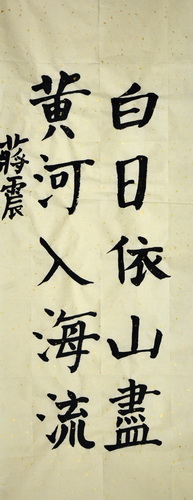 白日依山盡
黃河入海流
蔣震